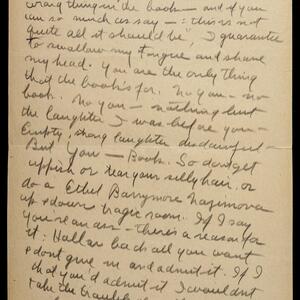 wrong thing in the book — and if you
can so much as say — "this is not
quite all it should be", I guarantee
to swallow my tongue and shave
my head. You are the only thing
that the book is for. No you — no
book. No you — nothing but
the laughter I was before you —
Empty, sharp laughter disdainful —
But you — Book. So don't get
uppish or tear your silly hair, or
do a Ethel Barrymore Nazimova
up & down tragic room. If I say
you're an — there's a reason for
it: Holler back all you want
& don't give in and admit it. If I
that you'd admit it I wouldn't
take the trouble